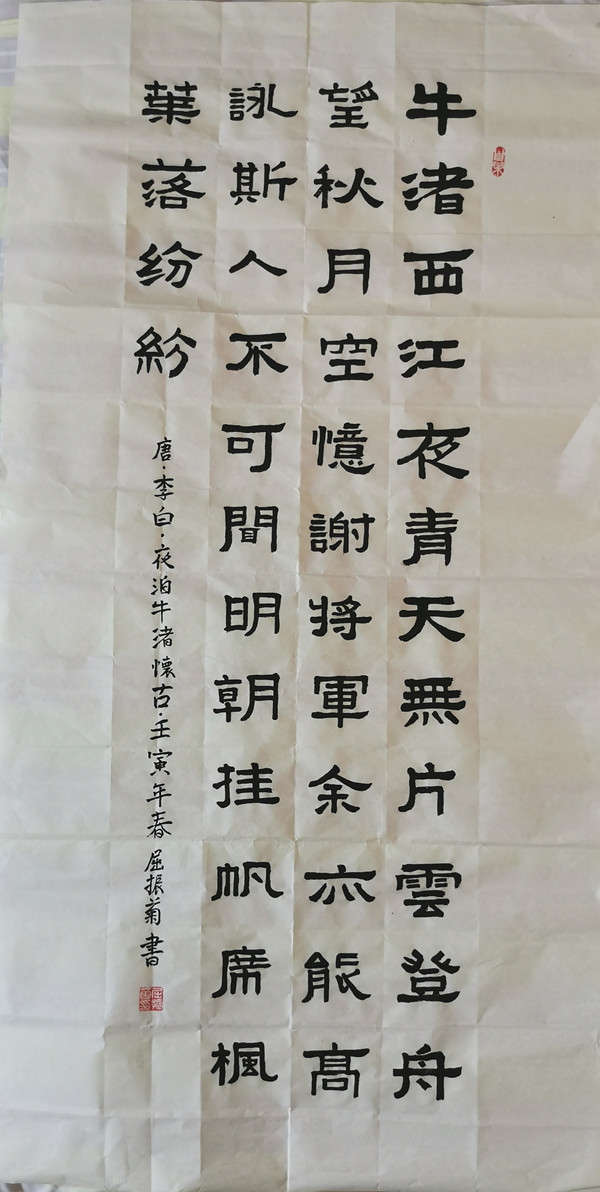 牛渚西江夜青天無片雲登舟
望秋月空憶謝将軍余亦能高
詠斯人不可聞明朝挂帆席楓
葉落纷紛
唐·李白·夜泊牛渚懷古·壬寅年春 屈振菊書